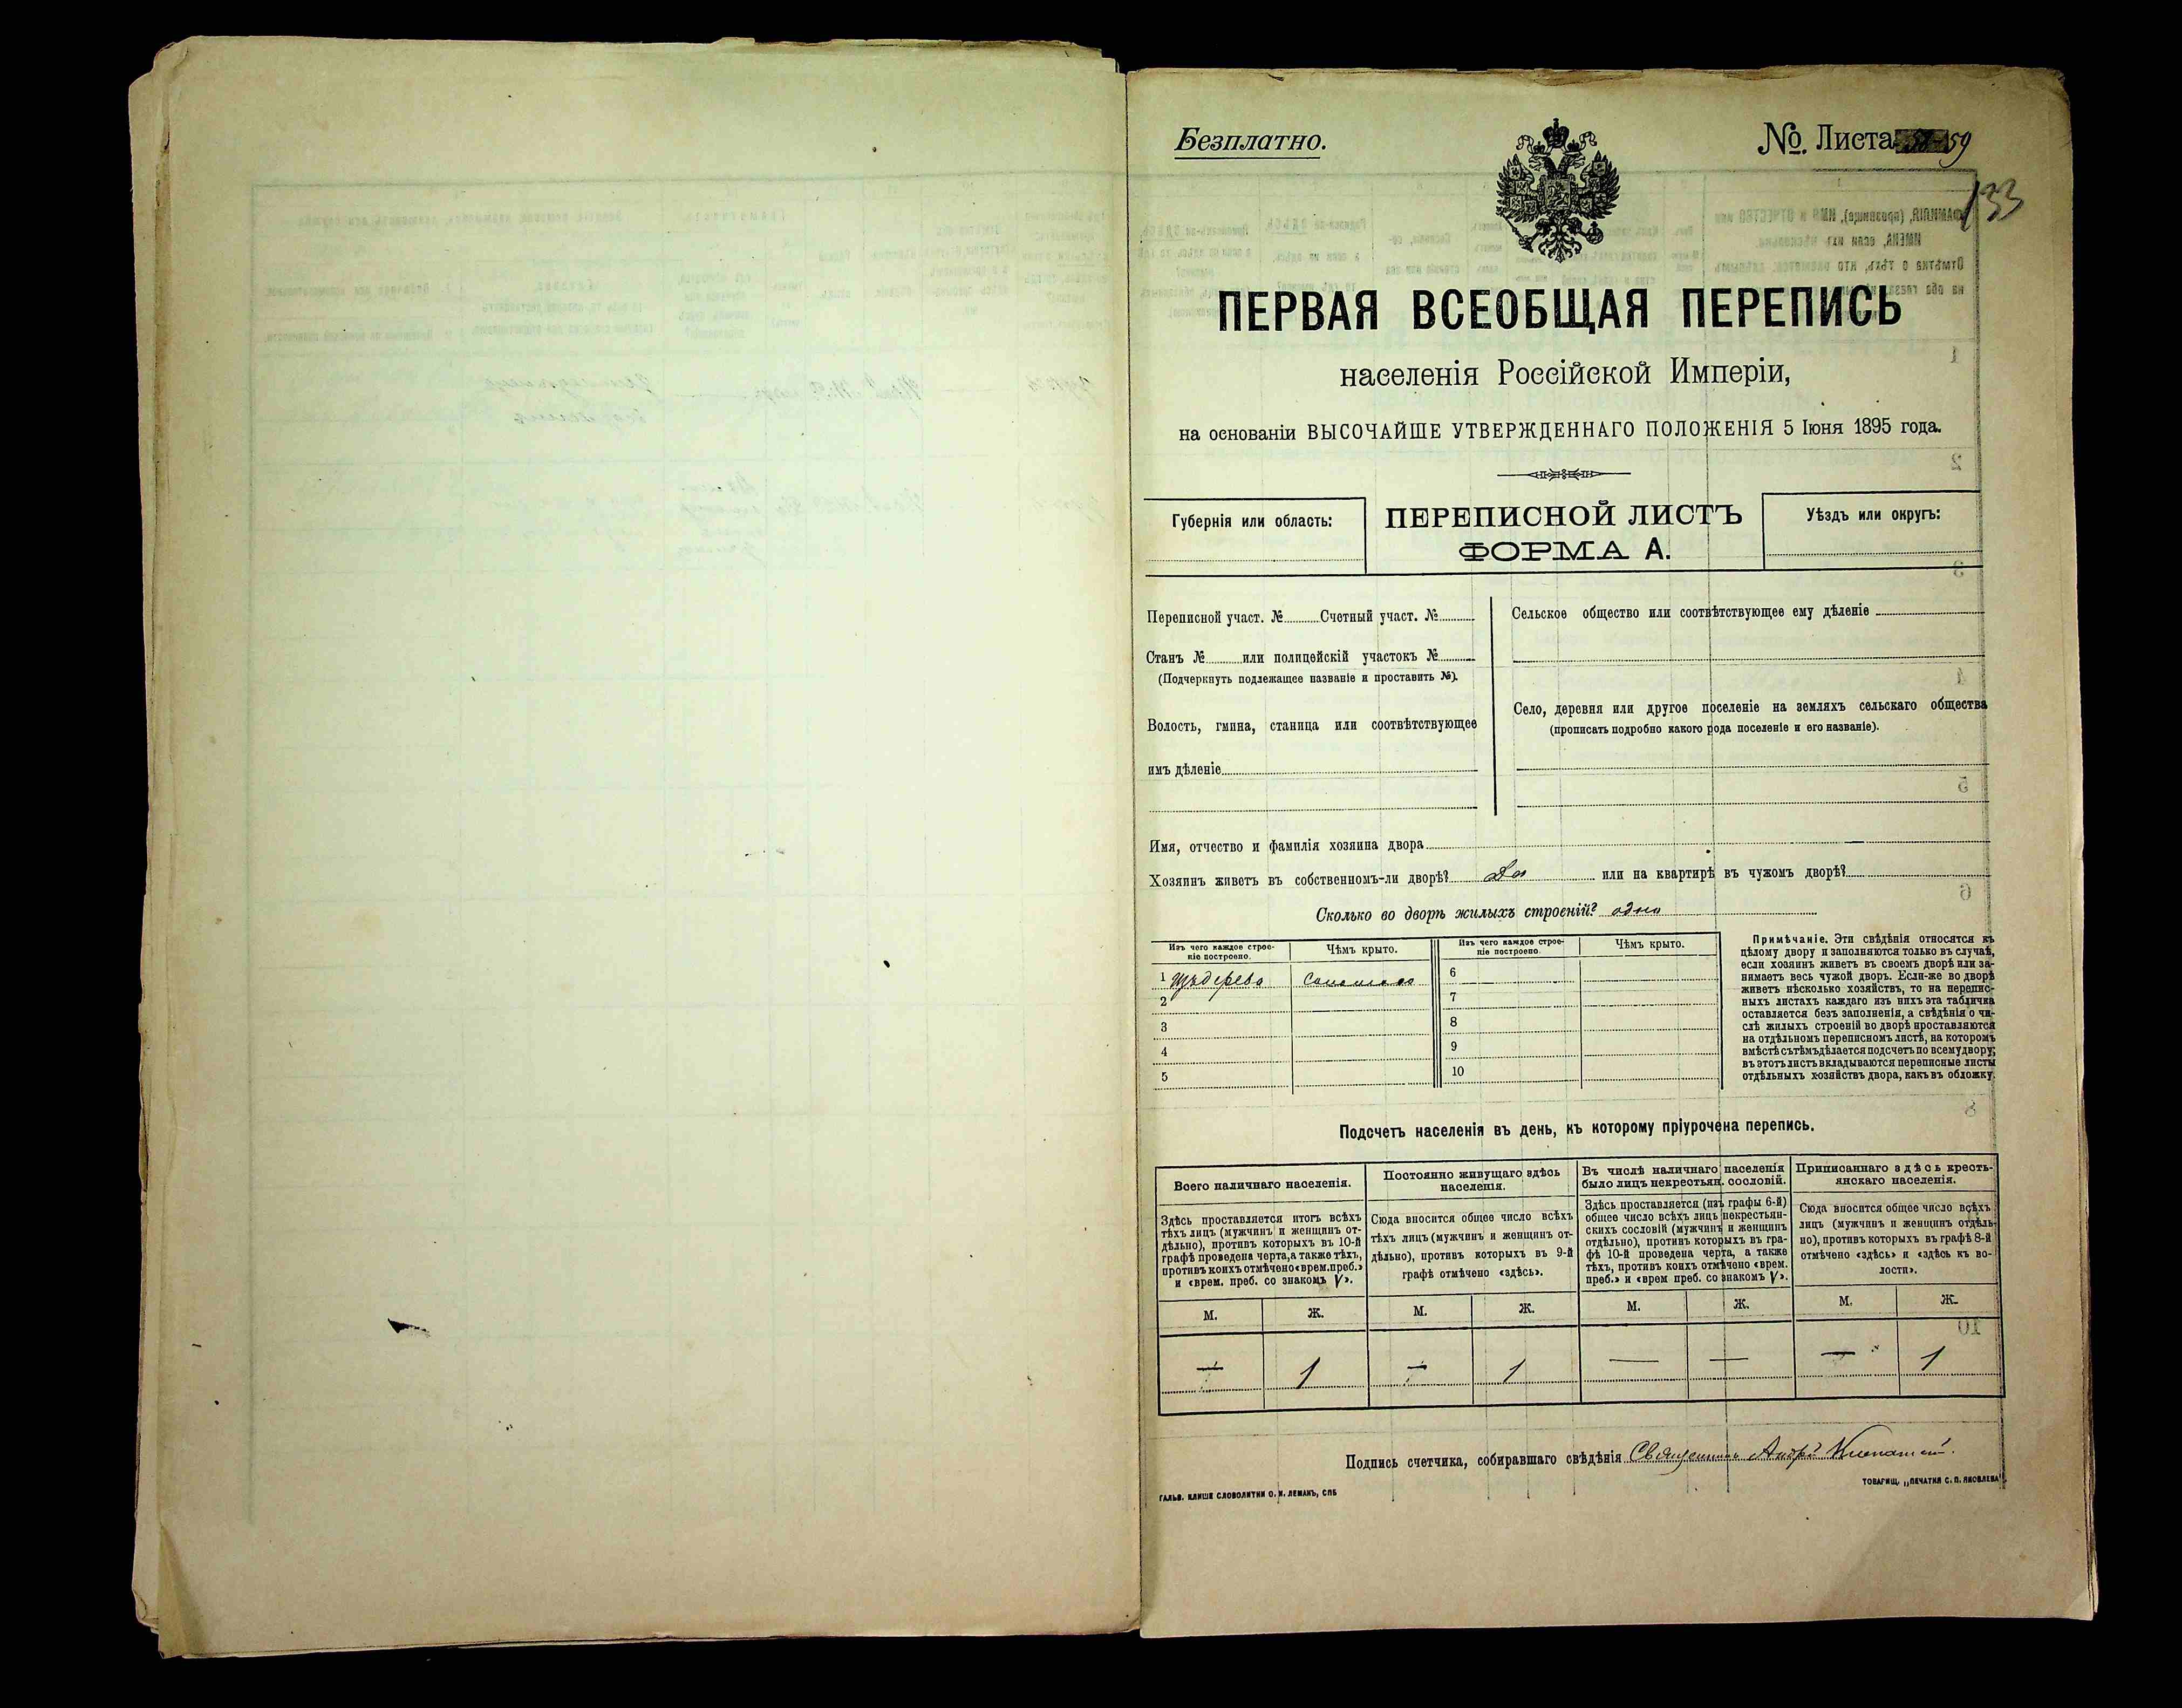 Безплатно.
№. Листа 59
133
ПЕРВАЯ ВСЕОБЩАЯ ПЕРЕПИСЬ
населенія Россійской Имперіи,
на основаніи ВЫСОЧАЙШЕ УТВЕРЖДЕННАГО ПОЛОЖЕНІЯ 5 Іюня 1895 года.
Губернія или область:
ПЕРЕПИСНОЙ ЛИСТЪ
ФОРМА А.
Уѣздъ или округъ:
Переписной участ. № Счетный участ. №
Станъ № или полицейскій участокъ №
(Подчеркнуть подлежащее названіе и проставить №).
Волость, гмина, станица или соотвѣтствующее
имъ дѣленіе
Сельское общество или соотвѣтствующее ему дѣленіе
Село, деревня или другое поселеніе на земляхъ сельскаго общества
(прописать подробно какого рода поселеніе и его названіе).
Имя, отчество и фамилія хозяина двора
Хозяинъ живетъ въ собственномъ-ли дворѣ? Да или на квартирѣ въ чужомъ дворѣ?
Сколько во дворѣ жилыхъ строеній? одно
Изъ чего каждое строе-
ніе построено.
Чѣмъ крыто.
Изъ чего каждое строе-
ніе построено.
Чѣмъ крыто.
1 Изъ дерева Соломою
2
3
4
5
6
7
8
9
10
Примѣчаніе. Эти свѣдѣнія относятся къ
цѣлому двору и заполняются только въ случаѣ,
если хозяинъ живетъ въ своемъ дворѣ или за-
нимаетъ весь чужой дворъ. Если-же во дворѣ
живетъ нѣсколько хозяйствъ, то на перепис-
ныхъ листахъ каждаго изъ нихъ эта табличка
оставляется безъ заполненія, а свѣдѣнія о чи-
слѣ жилыхъ строеній во дворѣ проставляются
на отдѣльномъ переписномъ листѣ, на которомъ
вмѣстѣ съ тѣмъ дѣлается подсчетъ по всему двору;
въ этотъ листъ вкладываются переписные листы
отдѣльныхъ хозяйствъ двора, какъ въ обложку.
Подсчетъ населенія въ день, къ которому пріурочена перепись.
Всего наличнаго населенія.
Здѣсь проставляется итогъ всѣхъ
тѣхъ лицъ (мужчинъ и женщинъ от-
дѣльно), противъ которыхъ въ 10-й
графѣ проведена черта, а также тѣхъ,
противъ коихъ отмѣчено «врем. преб.»
и «врем. преб. со знакомъ V».
Постоянно живущаго здѣсь
населенія.
Сюда вносится общее число всѣхъ
тѣхъ лицъ (мужчинъ и женщинъ от-
дѣльно), противъ которыхъ въ 9-й
графѣ отмѣчено «здѣсь».
Въ числѣ наличнаго населенія
было лицъ некрестьян. сословій.
Здѣсь проставляется (изъ графы 6-й)
общее число всѣхъ лицъ некрестьян-
скихъ сословій (мужчинъ и женщинъ
отдѣльно), противъ которыхъ въ гра-
фѣ 10-й проведена черта, а также
тѣхъ, противъ коихъ отмѣчено «врем.
преб.» и «врем преб. со знакомъ V».
Приписаннаго здѣсь кресть-
янскаго населенія.
Сюда вносится общее число всѣхъ
лицъ (мужчинъ и женщинъ отдѣль-
но), противъ которыхъ въ графѣ 8-й
отмѣчено «здѣсь» и «здѣсь къ во-
лости».
М. Ж. М. Ж. М. Ж. М. Ж.
— 1 — 1 — — — 1
Подпись счетчика, собиравшаго свѣдѣнія Священникъ Андрей
ГАЛЬВ. КЛИШЕ СЛОВОЛИТНИ О. И. ЛЕМАНЪ, СПБ
ТОВАРИЩ. „ПЕЧАТНЯ С. П. ЯКОВЛЕВА“.